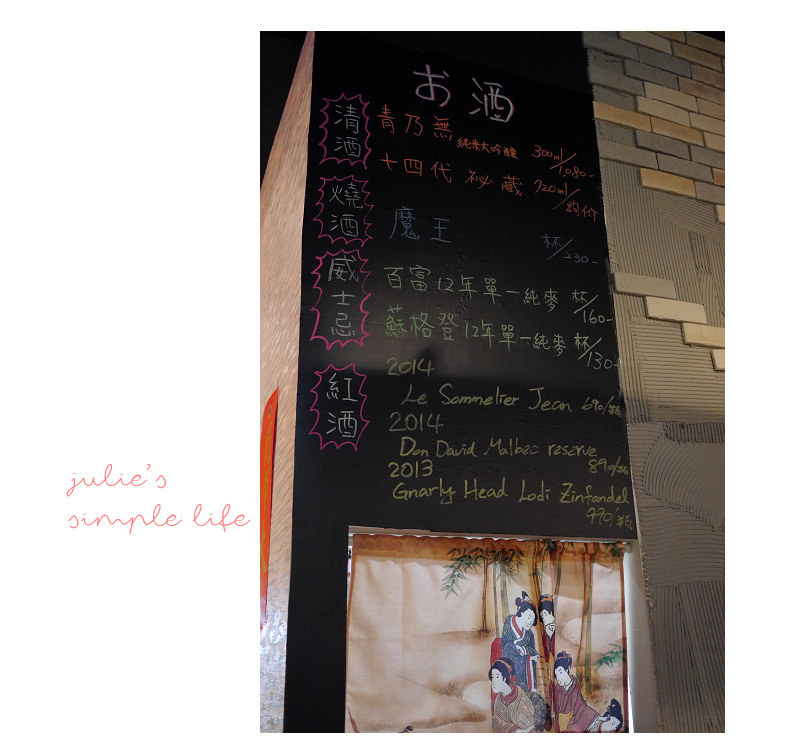 お酒
清酒
青乃無 純米大吟釀 300ml/1,080-
十四代 祕蔵 720ml/詢价
燒酒
魔王 杯/230-
威士忌
百富12年單一純麥 杯/160-
蘇格登12年單一純麥 杯/130-
紅酒
2014
Le Sommelier Jean 690/瓶
2014
Don David Malbec reserve
890/瓶
2013
Gnarly Head Lodi Zinfandel
990/瓶
julie's
simple life